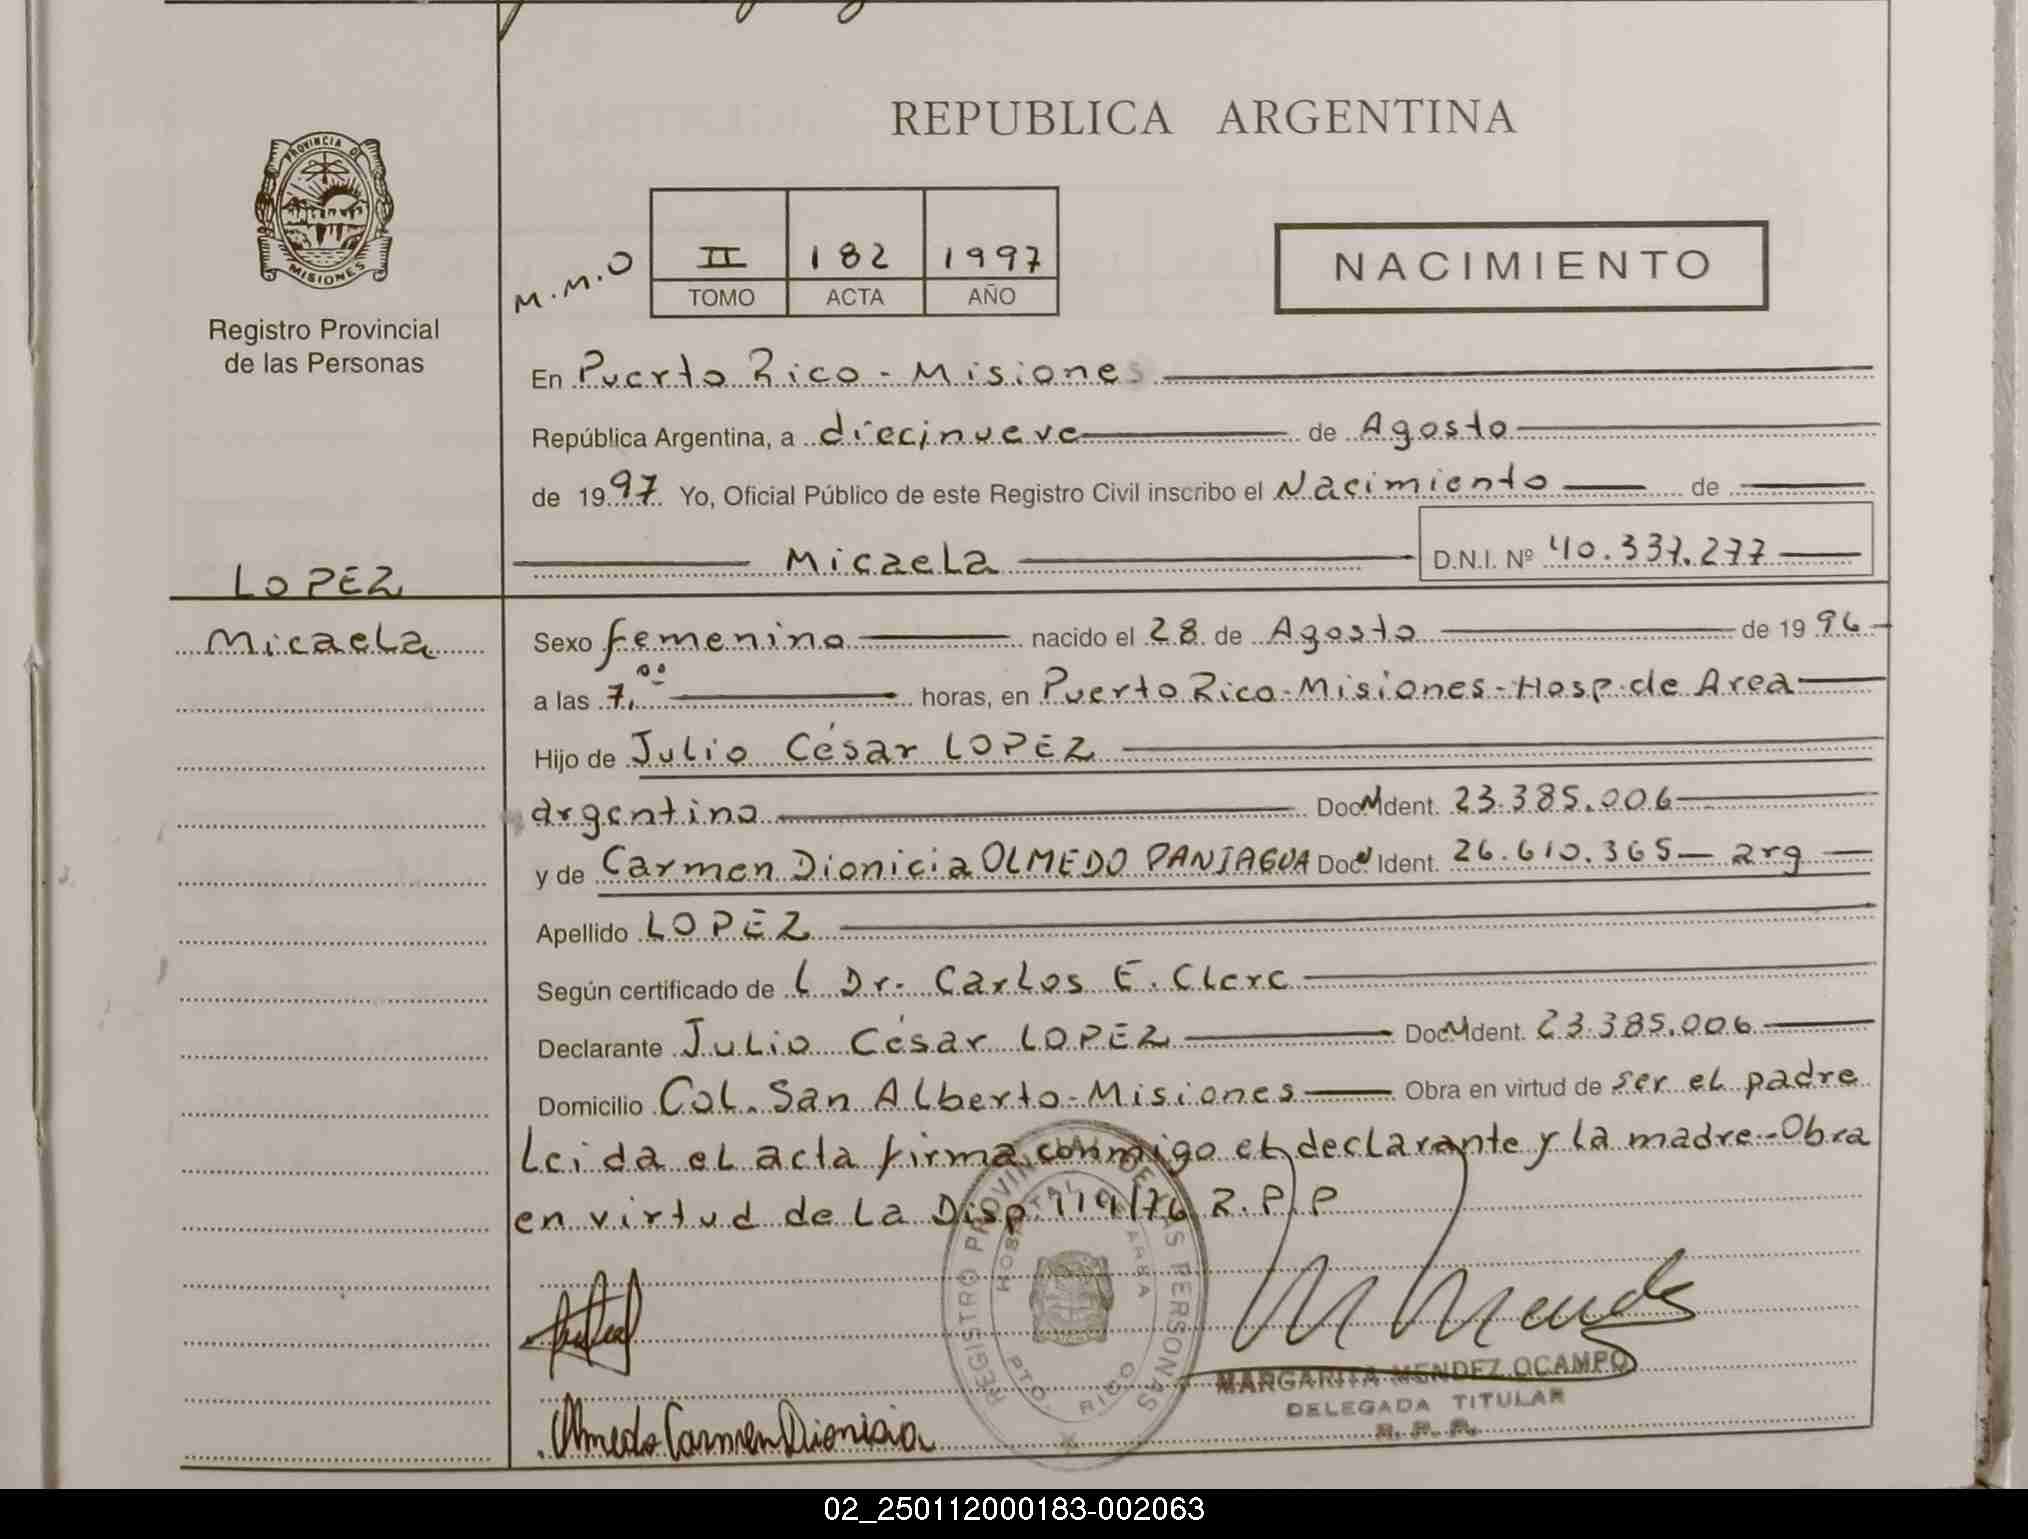 REPUBLICA ARGENTINA
PROVINCIA DE
MISIONES
Registro Provincial
de las Personas
M.M.O
II 182 1997
TOMO ACTA AÑO
NACIMIENTO
En Puerto Rico - Misiones
República Argentina, a diecinueve de Agosto
de 1997 Yo, Oficial Público de este Registro Civil inscribo el Nacimiento de
Micaela D.N.I. Nº 40.337.277
LOPEZ
Micaela
Sexo femenino nacido el 28 de Agosto de 1996
a las 7,00 horas, en Puerto Rico - Misiones - Hosp. de Area
Hijo de Julio César LOPEZ
argentino Doc M Ident. 23.385.006
y de Carmen Dionicia OLMEDO PANIAGUA Doc Ident. 26.610.365 - arg
Apellido LOPEZ
Según certificado de l Dr. Carlos E. Clerc
Declarante Julio César LOPEZ Doc M Ident. 23.385.006
Domicilio Col. San Alberto - Misiones Obra en virtud de ser el padre
Leida el acta firma conmigo el declarante y la madre - Obra
en virtud de la Disp. 119/76 R.P.P
REGISTRO PROVINCIAL DE LAS PERSONAS
HOSPITAL AREA
PTO. RICO
M Mende
MARGARITA MENDEZ OCAMPO
DELEGADA TITULAR
R. P. P.
Olmedo Carmen Dionicia
02_250112000183-002063